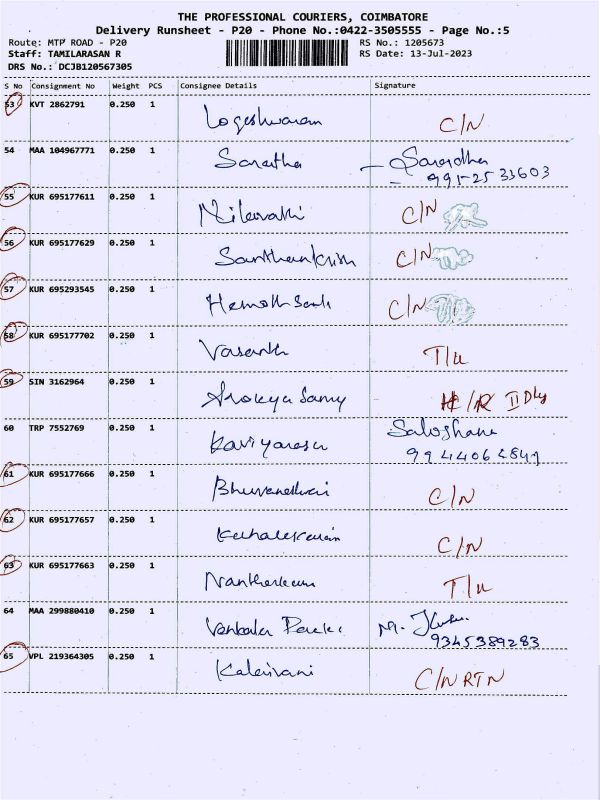 THE PROFESSIONAL COURIERS, COIMBATORE
Delivery Runsheet - P20 - Phone No.:0422-3505555 - Page No.:5
Route: MTP ROAD - P20 RS No.: 1205673
Staff: TAMILARASAN R RS Date: 13-Jul-2023
DRS No.: DCJB120567305
S No Consignment No Weight PCS Consignee Details Signature
53 KVT 2862791 0.250 1 Logeshwaran C/N
54 MAA 104967771 0.250 1 Saratha
KUR 695177611 0.250 1 C/N
55
56 KUR 695177629 0.250 1 C/N
57 KUR 695293545 0.250 1 C/N
58 KUR 695177702 0.250 1 Vasanth T/u
59 SIN 3162964 0.250 1 Arokya Samy II Dly
60 TRP 7552769 0.250 1
61 KUR 695177666 0.250 1 C/N
62 KUR 695177657 0.250 1 C/N
63 KUR 695177663 0.250 1 T/u
64 MAA 299880410 0.250 1
9345389283
65 VPL 219364305 0.250 1 Kalaivani C/N RTN